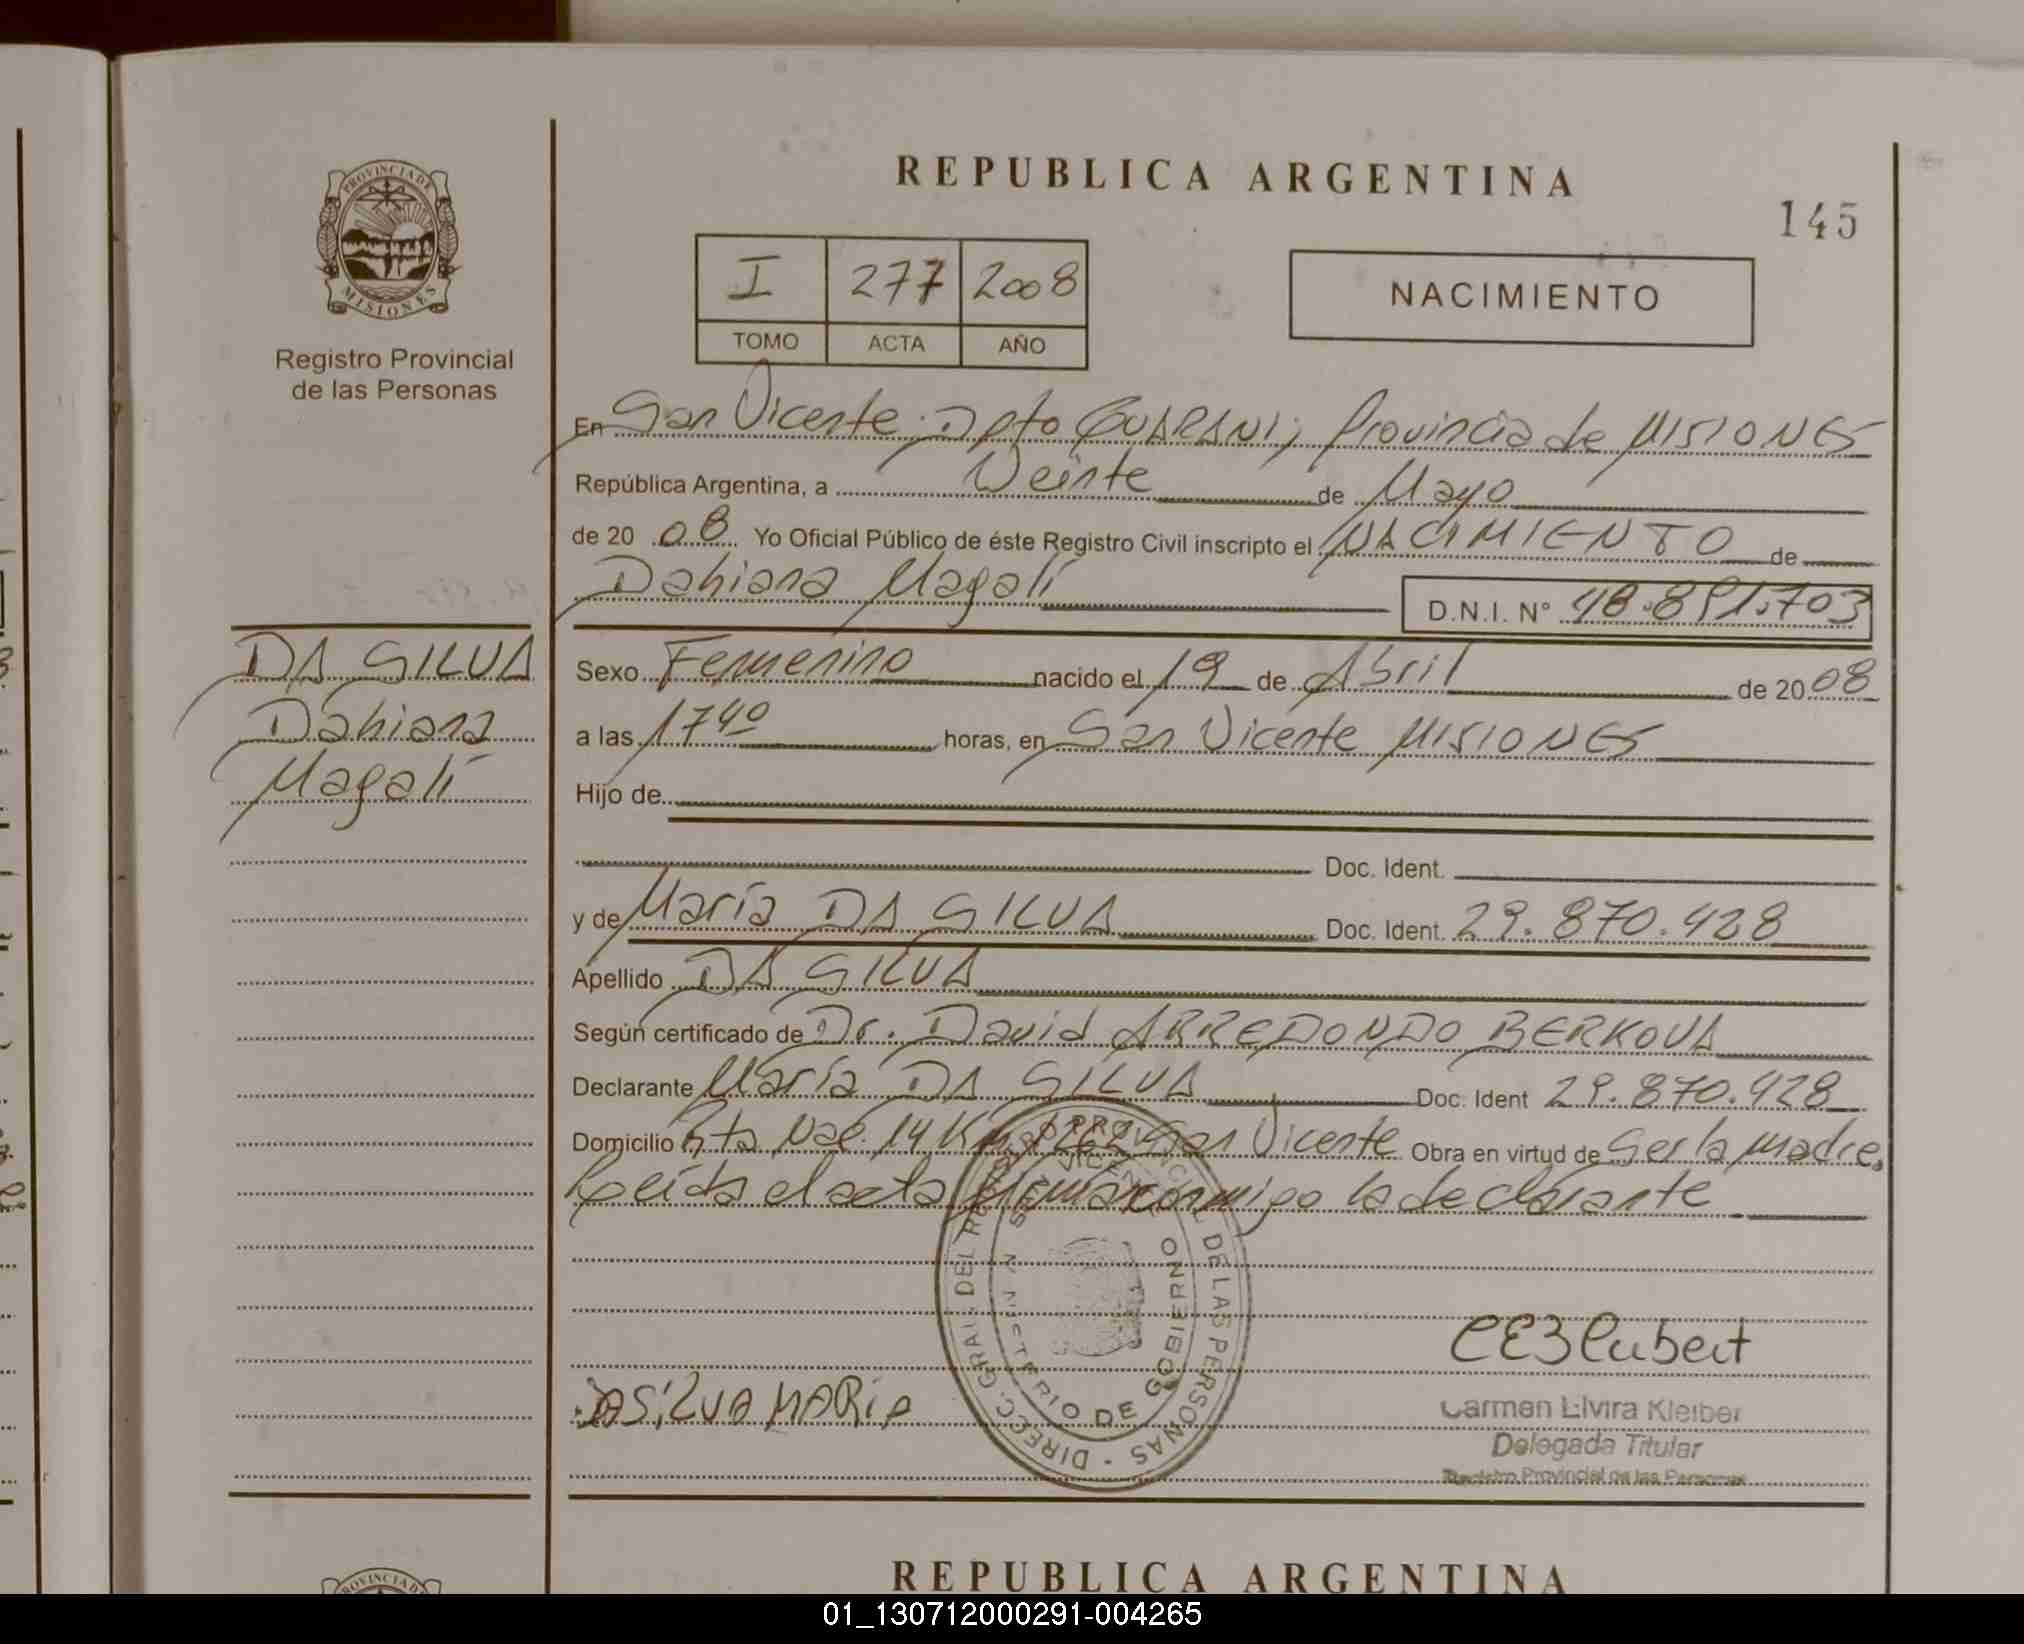 REPUBLICA ARGENTINA
145
PROVINCIA DE MISIONES
Registro Provincial
de las Personas
I 277 2008
TOMO ACTA AÑO
NACIMIENTO
En San Vicente Dpto GUARANI, Provincia de MISIONES
República Argentina, a Veinte de Mayo
de 20 08 Yo Oficial Público de éste Registro Civil inscripto el NACIMIENTO de
Dahiana Magalí D.N.I. Nº 48.891.703
DA SILVA
Dahiana
Magalí
Sexo Femenino nacido el 19 de Abril de 20 08
a las 17 40 horas, en San Vicente MISIONES
Hijo de
Doc. Ident.
y de María DA SILVA Doc. Ident. 29.870.428
Apellido DA SILVA
Según certificado de Dr. David ARREDONDO BERKOVA
Declarante María DA SILVA Doc. Ident 29.870.428
Domicilio Rta Nac. 14 Km 1262 San Vicente Obra en virtud de Ser la madre.
Leída el acta firma conmigo la declarante
DIREC. GRAL. DEL REGISTRO PROVINCIAL DE LAS PERSONAS
SAN VICENTE
MINISTERIO DE GOBIERNO
DASILVA MARIA
Carmen Elvira Kleiber
Delegada Titular
Registro Provincial de las Personas
REPUBLICA ARGENTINA
PROVINCIA D
01_130712000291-004265